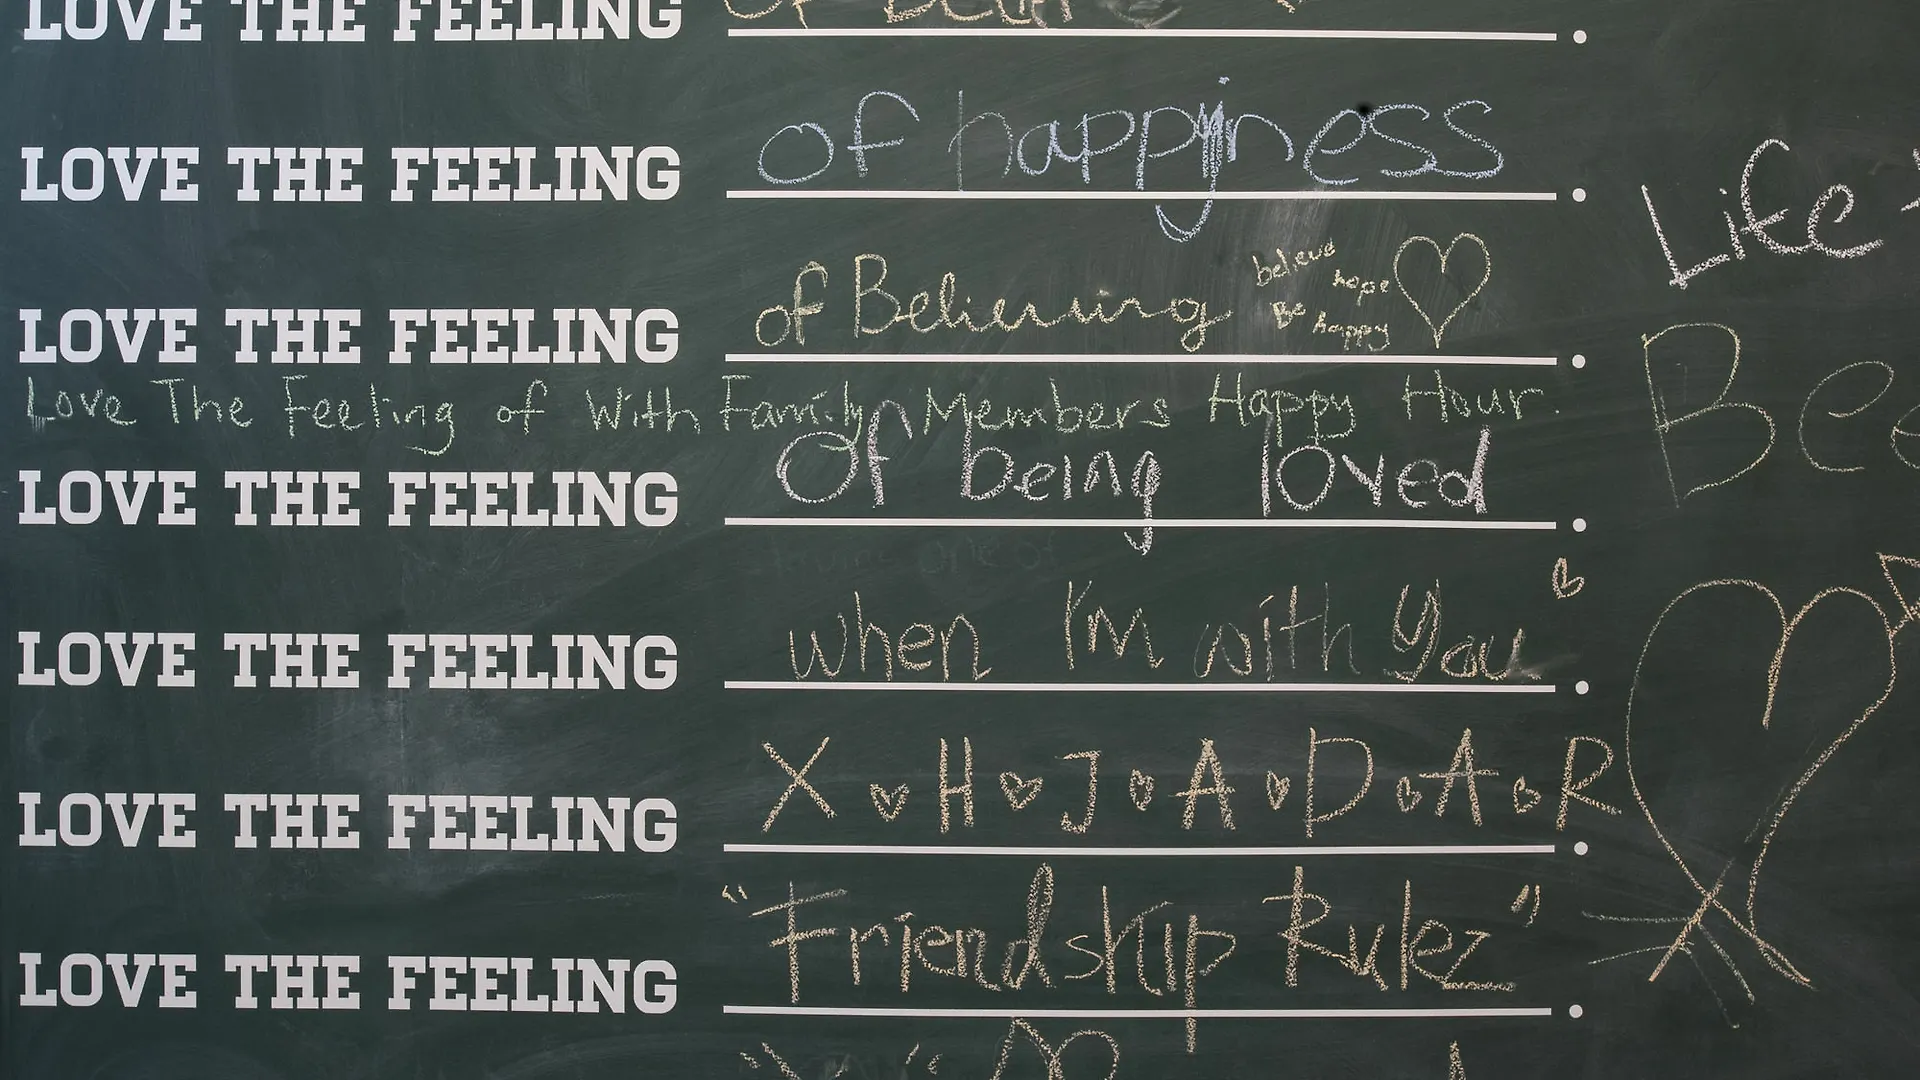 LOVE THE FEELING of
LOVE THE FEELING of happiness
Life
LOVE THE FEELING of Believing believe hope Be happy
Love The Feeling of With Family Members Happy Hour.
LOVE THE FEELING Of being loved
LOVE THE FEELING when I'm with You
LOVE THE FEELING X H J A D A R
LOVE THE FEELING "Friendship Rulez"